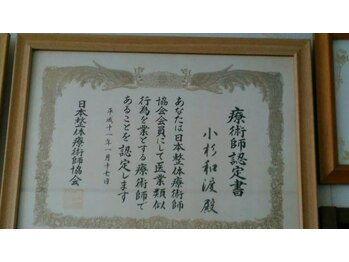 療術師認定書
小杉和渡 殿
あなたは日本整体療術師
協会会員にして医業類似
行為を業とする療術師で
あることを認定します
平成十一年一月十七日
日本整体療術師協会